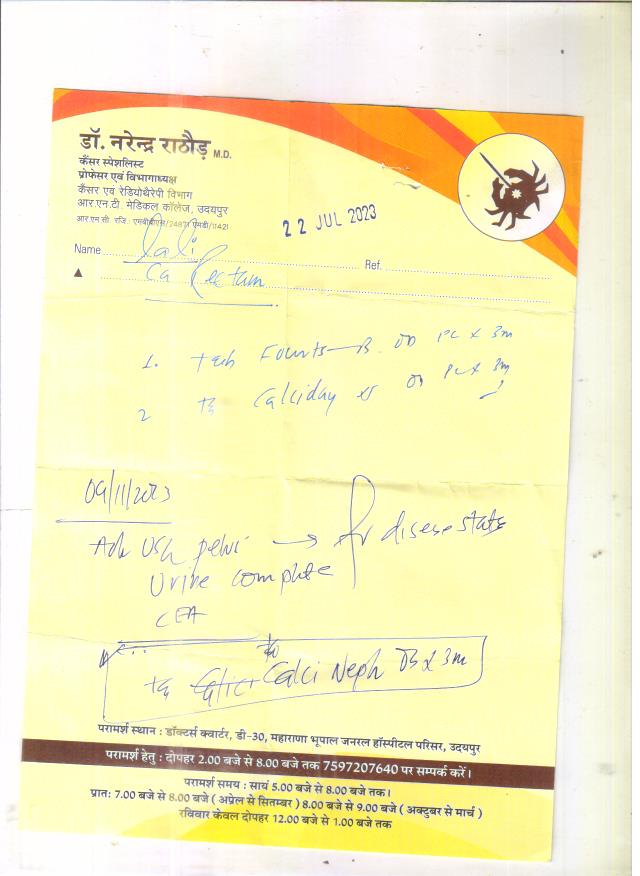 डॉ. नरेन्द्र राठौड़ M.D.
कैंसर स्पेशलिस्ट
प्रोफेसर एवं विभागाध्यक्ष
कैंसर एवं रेडियोथैरेपी विभाग
आर.एन.टी. मेडिकल कॉलेज, उदयपुर
आर.एम.सी. रजि.: एमबीबीएस/24871 एमडी/11421
22 JUL 2023
Name Lali Ref.
Ca Rectum
1. Tab B OD PC x 3m
2 Tb Calciday OD PC x 3m
09/11/2023
Adv USG pelvis → for disese stats
Urine complete
CEA
Tb Calci Neph x 3m
परामर्श स्थान : डॉक्टर्स क्वार्टर, डी-30, महाराणा भूपाल जनरल हॉस्पीटल परिसर, उदयपुर
परामर्श हेतु : दोपहर 2.00 बजे से 8.00 बजे तक 7597207640 पर सम्पर्क करें।
परामर्श समय : सायं 5.00 बजे से 8.00 बजे तक।
प्रातः 7.00 बजे से 8.00 बजे ( अप्रेल से सितम्बर ) 8.00 बजे से 9.00 बजे ( अक्टुबर से मार्च )
रविवार केवल दोपहर 12.00 बजे से 1.00 बजे तक